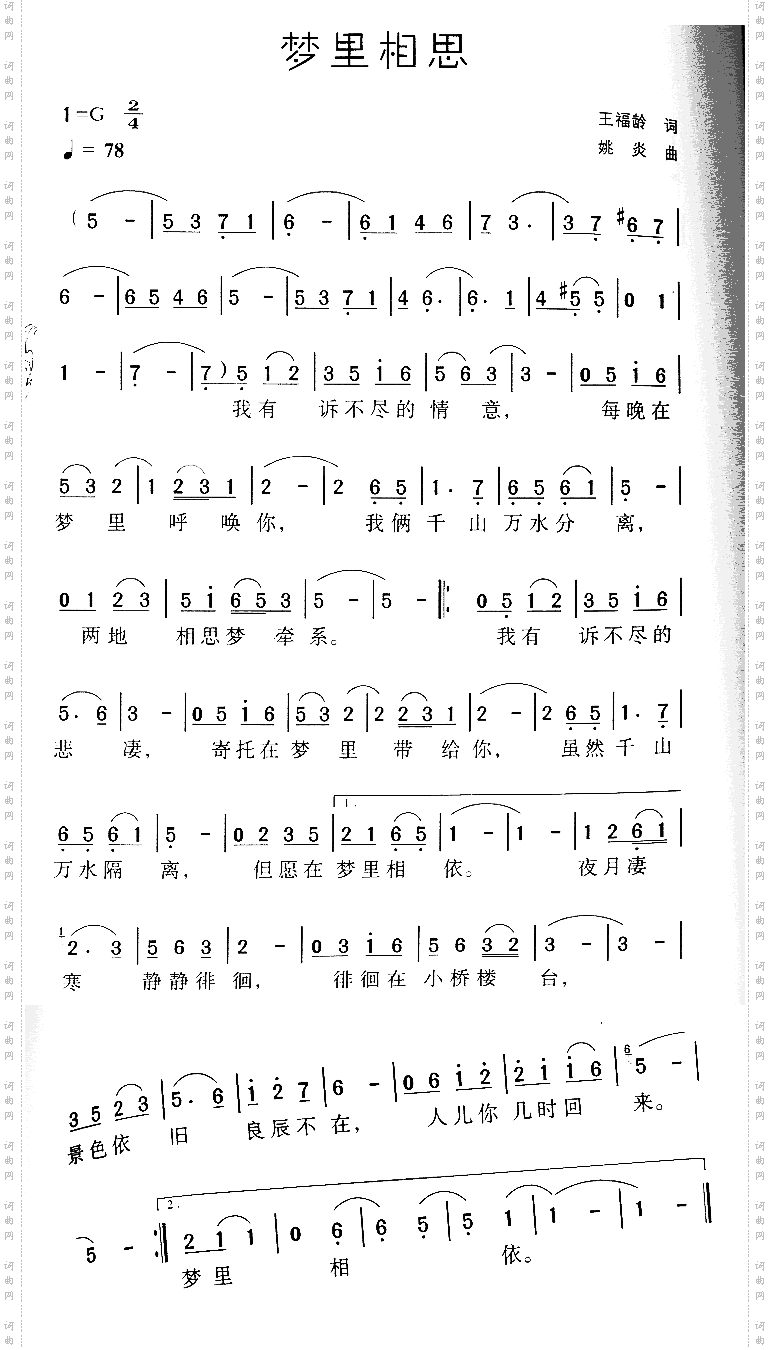 梦里相思
1=G 2/4
♩= 78
王福龄 词
姚炎 曲
(5 - | 5 3 7 1 | 6 - | 6 1 4 6 | 7 3 · | 3 7 #6 7 |
6 - | 6 5 4 6 | 5 - | 5 3 7 1 | 4 6 · | 6 · 1 | 4 #5 5 | 0 1 |
1 - | 7 - | 7 ) 5 1 2 | 3 5 i 6 | 5 6 3 | 3 - | 0 5 i 6 |
我有 诉不尽的 情 意, 每晚在
5 3 2 | 1 2 3 1 | 2 - | 2 6 5 | 1 · 7 | 6 5 6 1 | 5 - |
梦 里 呼 唤你, 我俩千山 万水分 离,
0 1 2 3 | 5 i 6 5 3 | 5 - | 5 - ‖: 0 5 1 2 | 3 5 i 6 |
两地 相思梦 牵系。 我有 诉不尽的
5 · 6 | 3 - | 0 5 i 6 | 5 3 2 | 2 2 3 1 | 2 - | 2 6 5 | 1 · 7 |
悲 凄, 寄托在 梦 里 带 给你, 虽然千山
1.
6 5 6 1 | 5 - | 0 2 3 5 | 2 1 6 5 | 1 - | 1 - | 1 2 6 1 |
万水隔 离, 但愿在 梦里相 依。 夜月凄
1 2 · 3 | 5 6 3 | 2 - | 0 3 i 6 | 5 6 3 2 | 3 - | 3 - |
寒 静静徘 徊, 徘徊在 小桥楼 台,
3 5 2 3 | 5 · 6 | i 2 7 | 6 - | 0 6 i 2 | 2 i i 6 | 6 5 - |
景色依 旧 良辰不 在, 人儿你 几时回 来。
2.
5 - :‖ 2 1 1 | 0 6 | 6 5 | 5 1 | 1 - | 1 - |
梦里 相 依。
词曲网